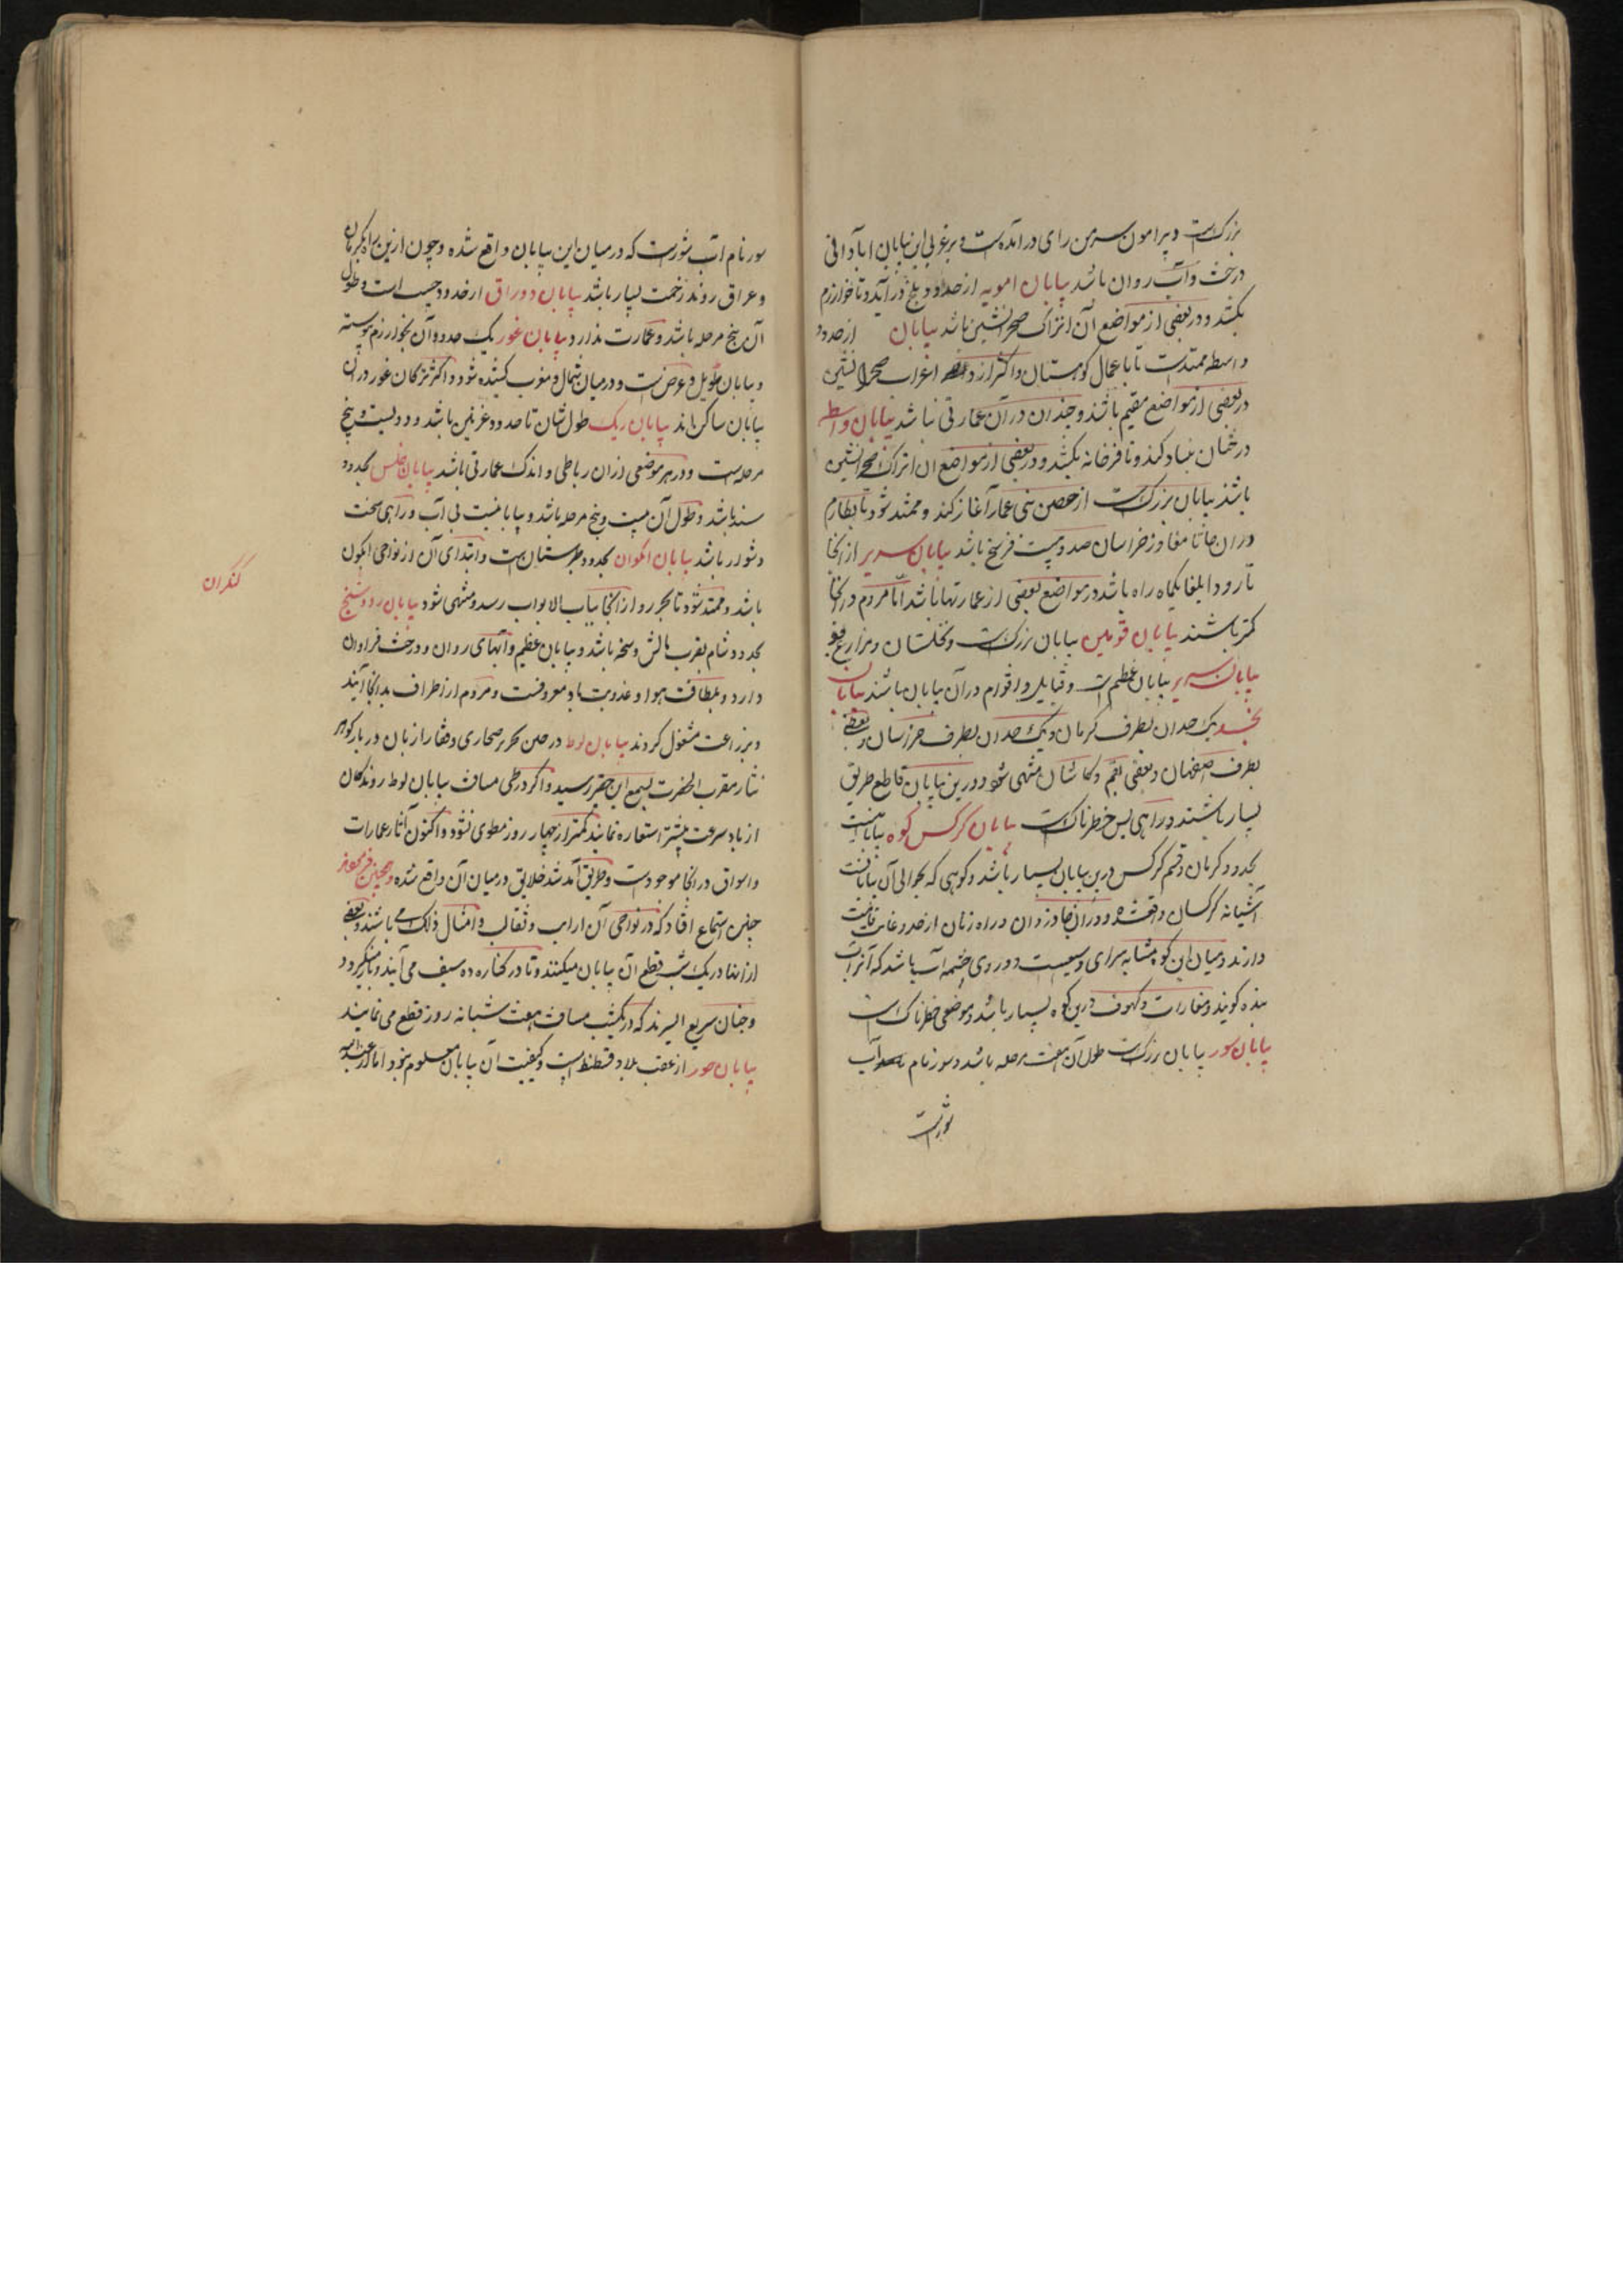 بزرک است و پیرامون سرمن رای درامده است و بر غربی این بیابان ابادانی
درخت و آب روان باشد بیابان امویه از حدود بلخ درآید و تا خوارزم
بکشد و در بعضی از مواضع آن اتراک صحرانشین باشد بیابان از حدود
واسطه ممتدست تا باعمال کوهستان و اکثر از اعراب صحرا نشین
در بعضی از مواضع مقیم باشند و چندان در آن عمارتی نباشد بیابان واسطه
درخمان بنیاد کند و تا فرخانه بکشد و در بعضی از مواضع ان اتراک صحرانشین
باشند بیابان بزرک است از حصن بنی عمار آغاز کند و ممتد شود تا بطارم
دران جا تا مفاوز خراسان صد و بیست فرسخ باشد بیابان سریر از انجا
تا رود ایلغا یکماه راه باشد در مواضع بعضی از عمارتها باشد امّا مردم در انجا
کمتر باشند بیابان قومین بیابان بزرک است و نخلستان و مزارع
بیابان سریر بیابان عظیم است و قبایل و اقوام در آن بیابان باشند بیابان
یک حد ان بطرف کرمان و یک حد ان بطرف خراسان و بعضی
بطرف اصفهان و بعضی بقم و کاشان منتهی شود و درین بیابان قاطع طریق
بسیار باشند و راهی بس خطرناک است بیابان کرکس کوه بیابانیست
بحدود کرمان و قم کرکس درین بیابان بسیار باشد و کوهی که بحوالی آن بیابانست
آشیانه کرکسان واقعشده و دران جا دزدان و راه زنان از حد و غایت
دارند و میان این کوه بمثابه سرای وسیعیست و در وی چشمه آب باشد که آنرا آب
بنده کویند و مغارات و کهوف درین کوه بسیار باشد و موضعی خطرناک است
بیابان سور بیابان بزرکست طول آن هفت مرحله باشد و سور نام آب
شورست
سور نام آب شورست که در میان این بیابان واقع شده و چون ازین راه بکرمان
و عراق روند زحمت بسیار باشد بیابان دوراق از حدود است و طول
آن پنج مرحله باشد و عمارت ندارد بیابان غور یک حدود آن بخوارزم پیوسته
و بیابان طویل و عرض است و در میان شمال و مغرب کشیده شود و اکثر ترکان غور در ان
بیابان ساکن اند بیابان ریک طول شان تا حدود غزنین باشد و دویست و پنج
مرحله است و در هر موضعی از ان رباطی و اندک عمارتی باشد بیابان بحدود
سند باشد و طول آن بیست و پنج مرحله باشد و بیابانیست بی آب و راهی سخت
دشوار باشد بیابان اکوان بحدود طبرستان است و ابتدای آن از نواحی ایکون
باشد و ممتد شود تا بحر و از انجا بباب الابواب رسد و منتهی شود بیابان رود
کنکران
بحدود شام بقرب بالش و باشد و بیابان عظیم و آبهای روان و درخت فراوان
دارد و بلطافت هوا و عذوبت باد معروفست و مردم از اطراف بدانجا آیند
و بزراعت مشغول کردند بیابان لوط در حین تحریر صحاری و قفار از زبان دربار کوهر
نثار مقرب الحضرت بسمع این حقیر رسید و اکر در طی مسافت بیابان لوط روندکان
از باد سرعت بیشتر استعاره نمایند کمتر از چهار روز مطوی نشود و اکنون آثار عمارات
و اسواق در انجا موجودست و طریق آمد شد خلایق در میان آن واقع شده
چنین استماع افتاد که در نواحی آن ارانب و ثعالب و امثال ذلک می باشند و بعضی
از اینها در یک شب قطع آن بیابان میکنند و تا در کناره ده سیف می آیند و باز میکردد
و چنان سریع السیرند که در یکشب مسافت هفت شبانه روز قطع می نمایند
بیابان حور از عقب بلاد قسطنط است و کیفیت آن بیابان معلوم نبود اما